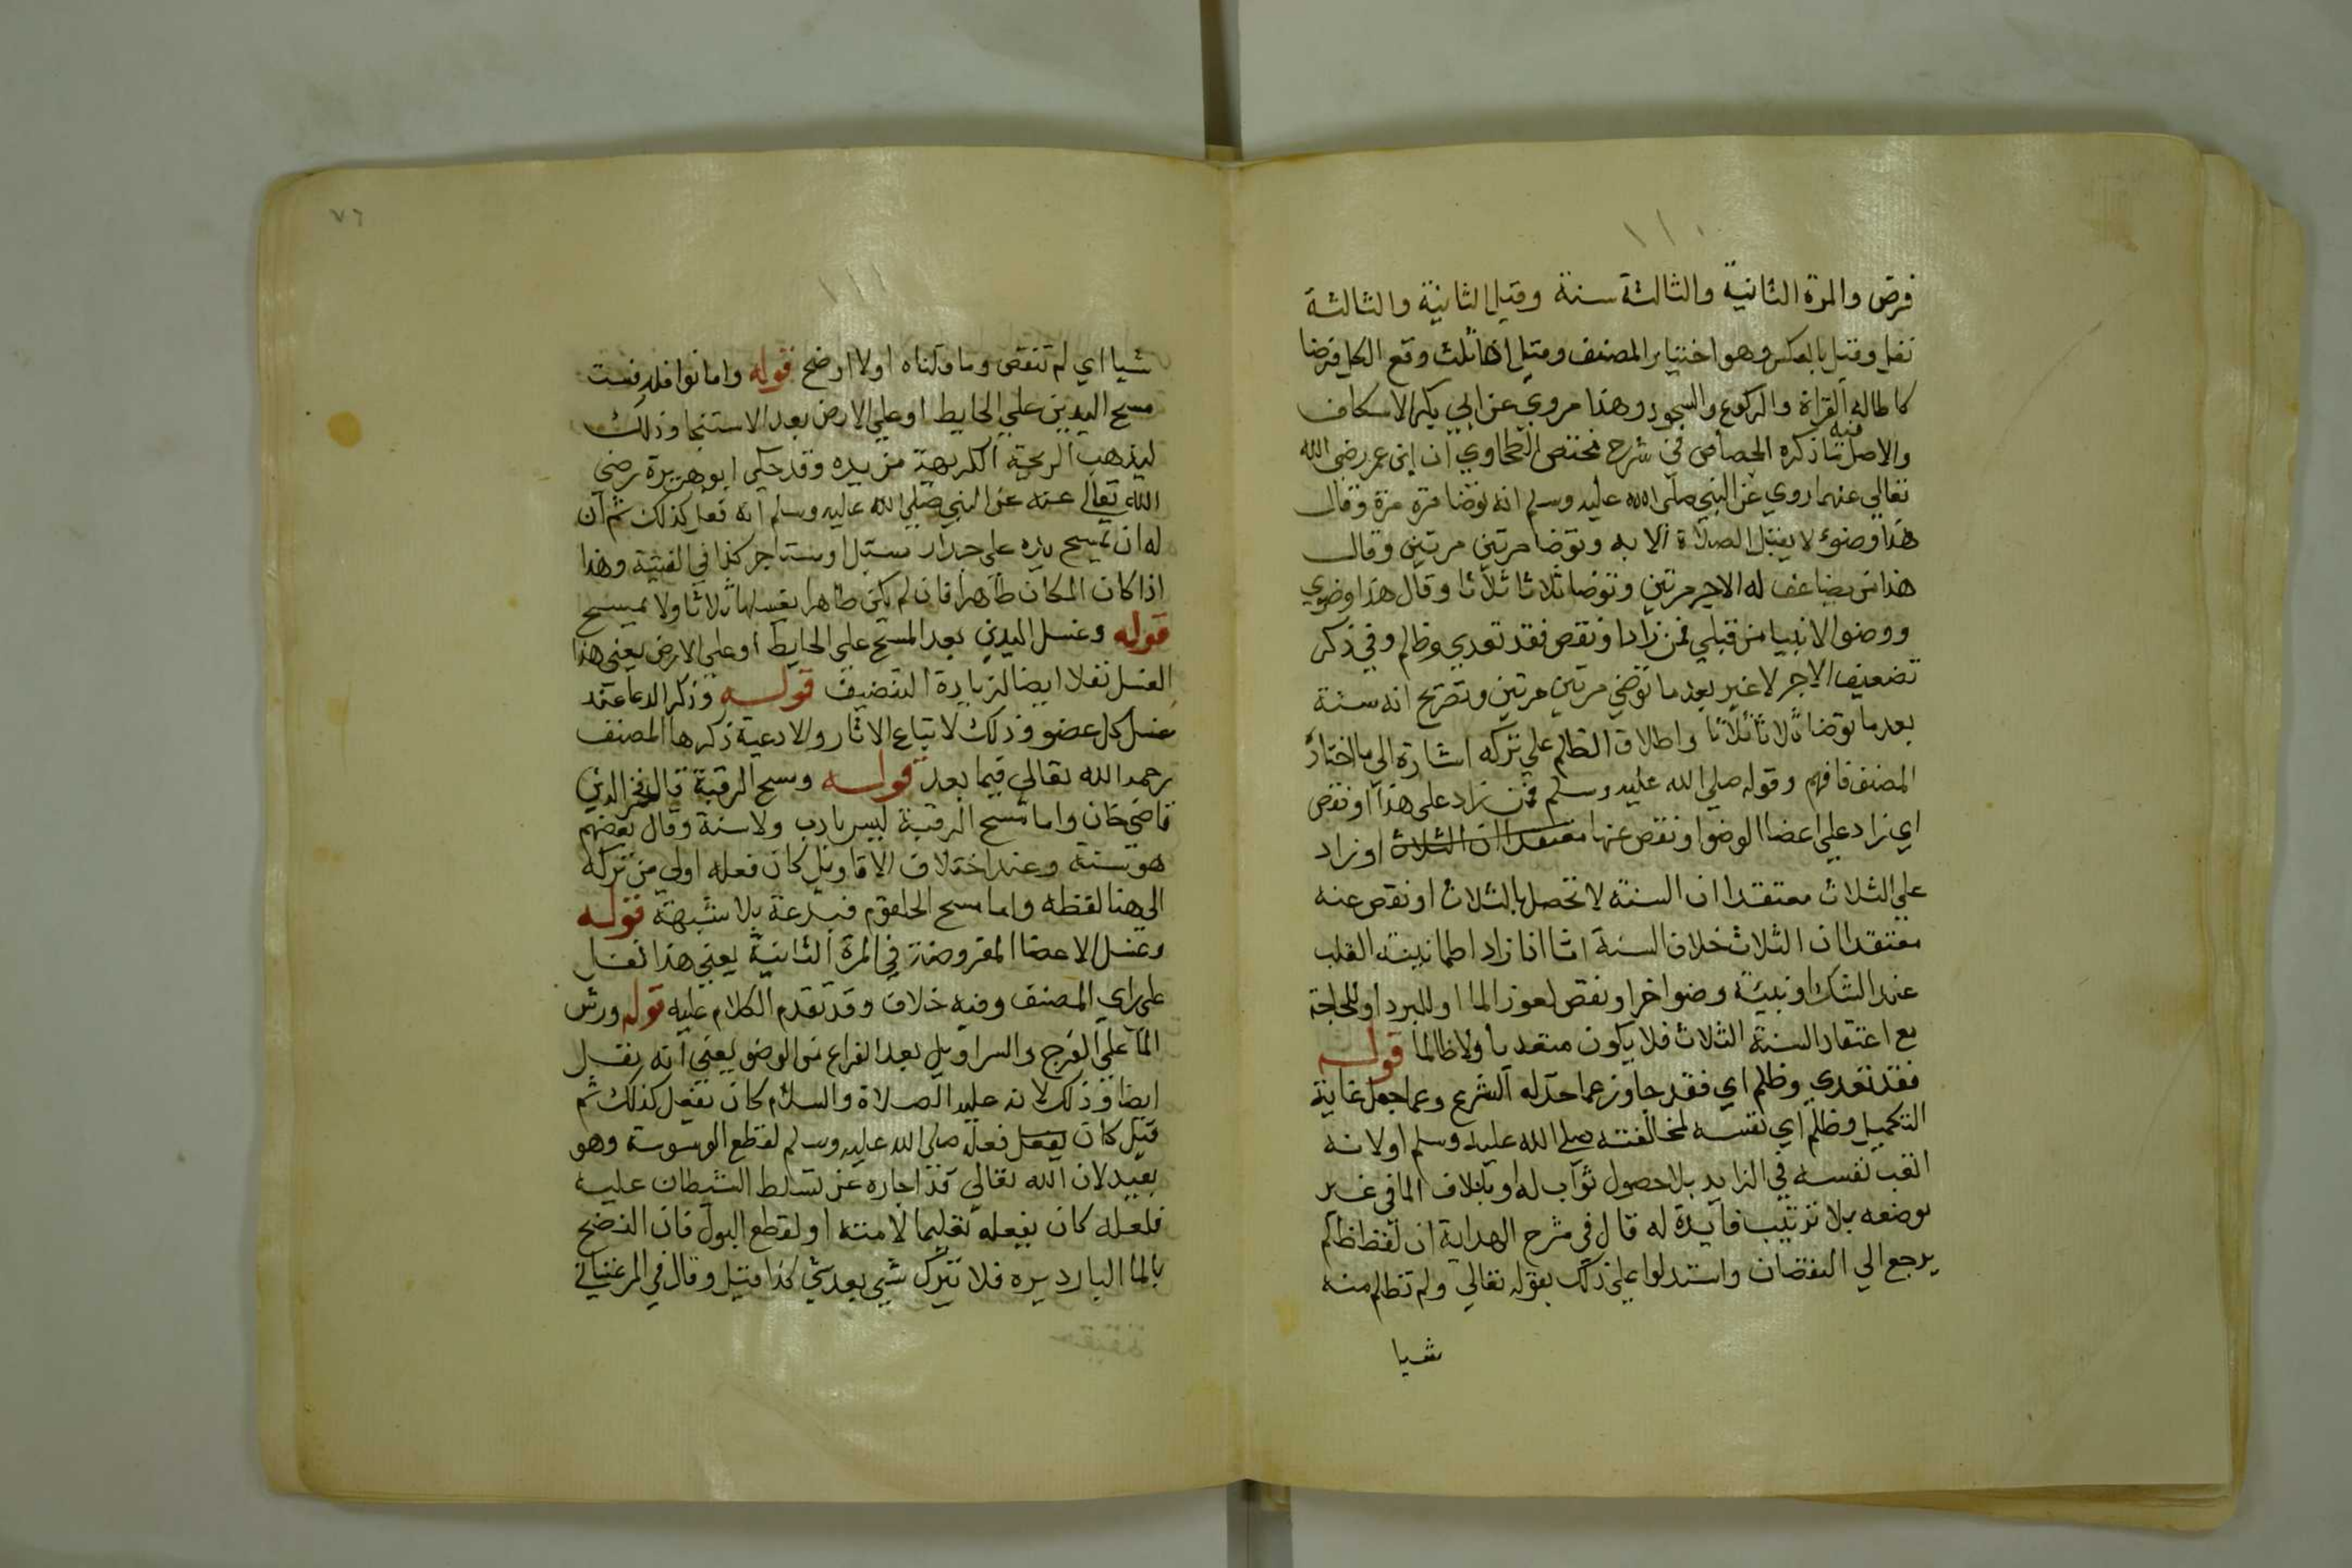 ١١٠
فرض والمرة الثانية والثالثة سنة وقيل الثانية والثالثة
نفل وقيل بالعكس وهو اختيار المصنف وقيل اذا ثلث وقع الكل فرضا
كاطالة القراة والركوع والسجود وهذا مروي عن ابي بكر الاسكاف
والاصل فيه ما ذكره الجصاص في شرح مختصر الطحاوي ان ابن عمر رضي الله
تعالي عنهما روي عن النبي صلى الله عليه وسلم انه توضا مرة مرة وقال
هذا وضوء لا يقبل الصلاة الا به وتوضا مرتين مرتين وقال
هذا من يضاعف له الاجر مرتين وتوضا ثلاثا ثلاثا وقال هذا وضوي
ووضوا الانبيا من قبلي فمن زاد او نقص فقد تعدي وظلم وفي ذكر
تضعيف الاجر لا غير بعد ما توضي مرتين مرتين وتصريح انه سنة
بعد ما توضا ثلاثا ثلاثا واطلاق الظلم علي تركه اشارة الي ما اختاره
المصنف فافهم وقوله صلي الله عليه وسلم فمن زاد على هذا او نقص
اي زاد علي اعضا الوضوا ونقص عنها معتقدا ان الثلاث او زاد
علي الثلاث معتقدا ان السنة لا تحصل بالثلاث او نقص عنه
معتقدا ان الثلاث خلاف السنة اما اذا زاد لطمانينة القلب
عند الشك او بنية وضوا خر او نقص لعوز الما او للبرد او للحاجة
مع اعتقاد السنة الثلاث فلا يكون متعديا ولا ظالما قوله
فقد تعدي وظلم اي فقد جاوز عما حد له الشرع وعما جعل غاية
التكميل وظلم اي نفسه لمخالفته صلي الله عليه وسلم او لانه
اتعب نفسه في الزايد بلا حصول ثواب له او باتلاف الما في غير
موضعه بلا ترتيب فايدة له قال في شرح الهداية ان لفظ ظلم
يرجع الي النقصان واستدلوا علي ذلك بقوله تعالي ولم تظلم منه
شيا
٧٦
١١١
شيا اي لم تنقص وما قلناه اولا اوضح قوله واما نوافله فست
مسح اليدين علي الحايط او علي الارض بعد الاستنجا وذلك
ليذهب الريحة الكريهة من يده وقد حكي ابو هريرة رضي
الله تعالي عنه عن النبي صلي الله عليه وسلم انه فعل كذلك ثم ان
له ان يمسح يده على جدار مسبل او مستاجر كذا في القنية وهذا
اذا كان المكان طاهرا فان لم يكن طاهرا يغسلها ثلاثا ولا يمسح
قوله وغسل اليدين بعد المسح على الحايط او علي الارض يعني هذا
الغسل نفلا ايضا لزيادة التنضيف قوله وذكر الدعا عند
غسل كل عضو وذلك لاتباع الاثار والادعية ذكرها المصنف
رحمه الله تعالي فيما بعد قوله ومسح الرقبة قال فخر الدين
قاضي خان واما مسح الرقبة ليس بادب ولا سنة وقال بعضهم
هو سنة وعند اختلاف الاقاويل كان فعله اولي من تركه
الى هنا لفظه واما مسح الحلقوم فبدعة بلا شبهة قوله
وغسل الاعضا المفروضة في المرة الثانية يعني هذا نفل
على راي المصنف وفيه خلاف وقد تقدم الكلام عليه قوله ورش
الما علي الفرج والسراويل بعد الفراغ من الوضو يعني انه نفل
ايضا وذلك لانه عليه الصلاة والسلام كان يفعل كذلك ثم
قيل كان يفعل فعله صلى الله عليه وسلم لقطع الوسوسة وهو
بعيد لان الله تعالي قد اجاره عن تسلط الشيطان عليه
فلعله كان يفعله تعليما لامته او لقطع البول فان النضح
بالما البارد يره فلا تترك شي بعد شي كذا قيل وقال في المرغيناني